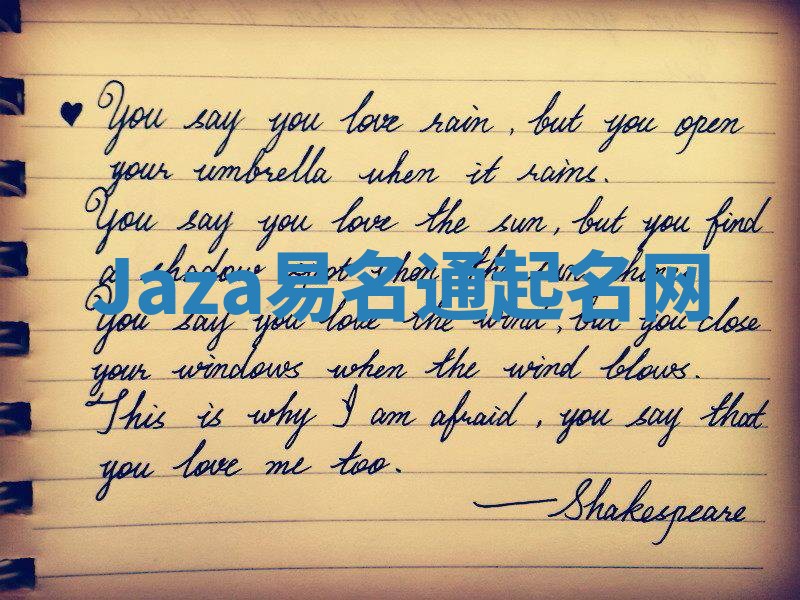 ♥ You say you love rain, but you open
your umbrella when it rains.
You say you love the sun, but you find
a shadow spot when the sun shines.
Jaza易名通起名网
You say you love the wind, but you close
your windows when the wind blows.
This is why I am afraid, you say that
you love me too.
— Shakespeare